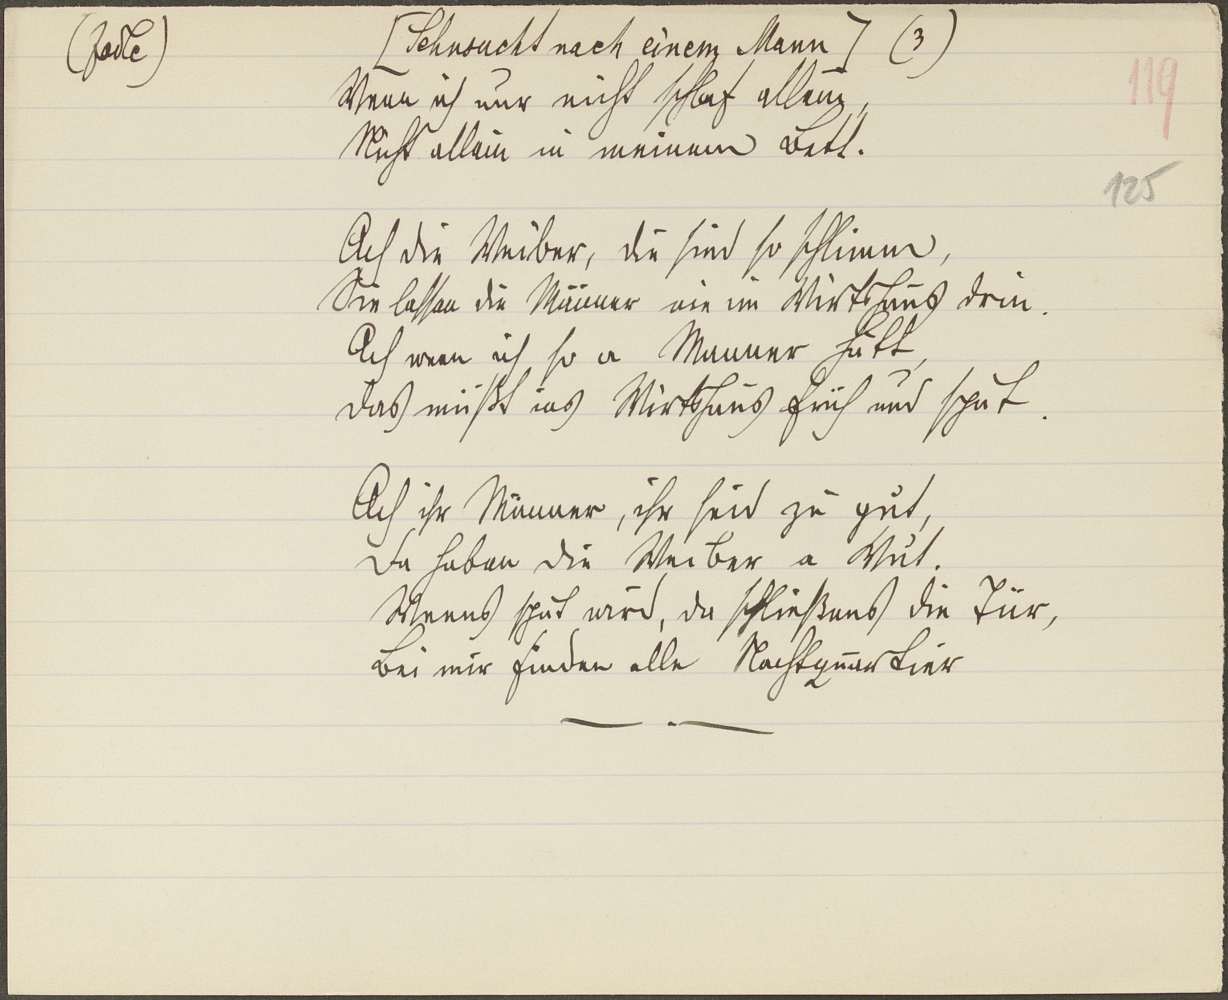 [Sehnsucht nach einem Mann] (3)
119
Wenn ich nur nicht schlaf allein,
Nicht allein in meinem Bett.
125
Ach die Weiber, die sind so schlimm,
Sie lassen die Männer nie im Wirtshaus drin.
Ach wenn ich so a Manner hätt,
Das müßt ins Wirtshaus früh und spät.
Ach ihr Männer, ihr seid zu gut,
Da haben die Weiber a Wut.
Wenns spät wird, da schließens die Tür,
Bei mir finden alle Nachtquartier